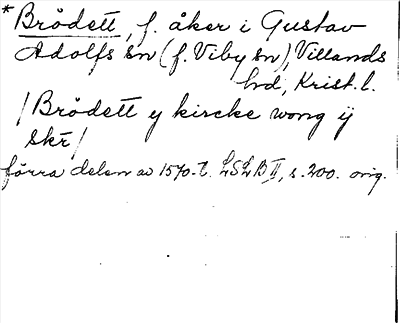 * Brådett, f. åker i Gustav
Adolfs sn (f. Viby sn), Villands
hd, Krist. l.
/Brådett y kircke wong ij
skr/
förra delen av 1570-t. LSLB II, s. 200. orig.